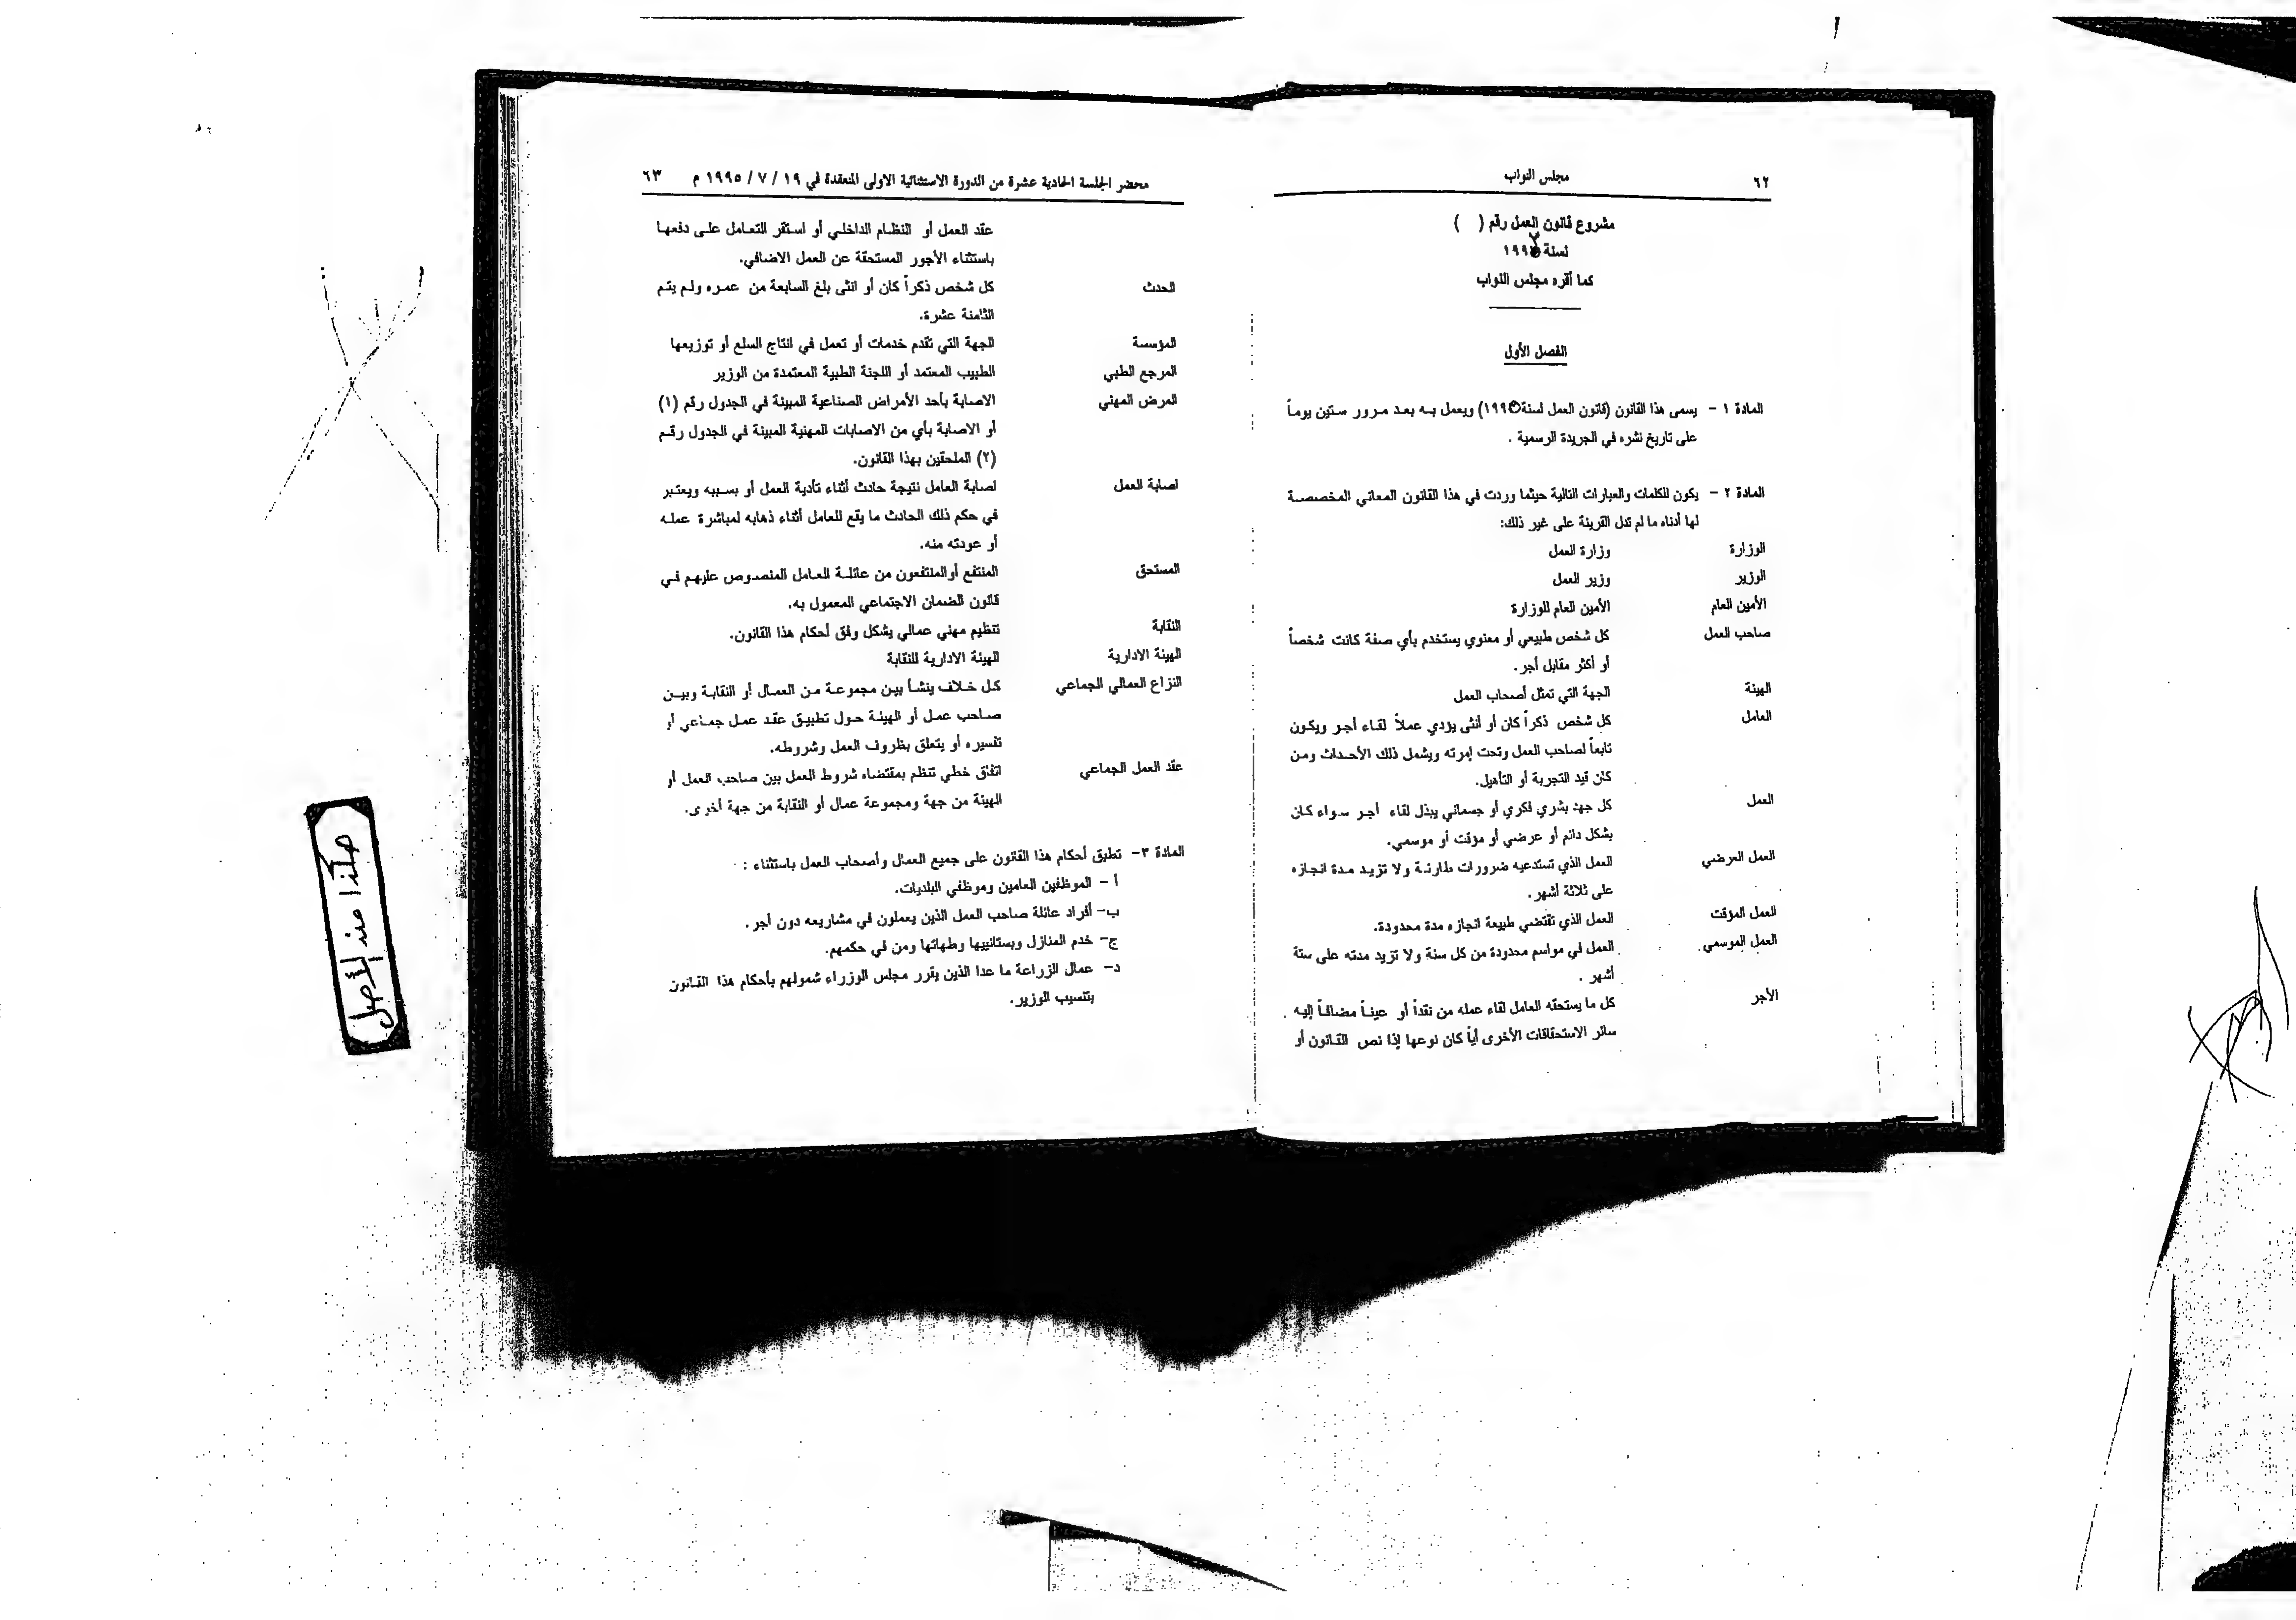 ٦٢
مجلس النواب
مشروع قانون العمل رقم (   )
لسنة
كما أقره مجلس النواب
الفصل الأول
المادة ١ - يسمى هذا القانون (قانون العمل لسنة) ويعمل به بعد مرور ستين يوماً
على تاريخ نشره في الجريدة الرسمية .
المادة ٢ - يكون للكلمات والعبارات التالية حيثما وردت في هذا القانون المعاني المخصصة
لها أدناه ما لم تدل القرينة على غير ذلك:
الوزارة وزارة العمل
الوزير وزير العمل
الأمين العام الأمين العام للوزارة
صاحب العمل كل شخص طبيعي أو معنوي يستخدم بأي صفة كانت شخصاً
أو أكثر مقابل أجر.
الهيئة الجهة التي تمثل أصحاب العمل
العامل كل شخص ذكراً كان أو أنثى يؤدي عملاً لقاء أجر ويكون
تابعاً لصاحب العمل وتحت إمرته ويشمل ذلك الأحداث ومن
كان قيد التجربة أو التأهيل.
العمل كل جهد بشري فكري أو جسماني يبذل لقاء أجر سواء كان
بشكل دائم أو عرضي أو مؤقت أو موسمي.
العمل العرضي العمل الذي تستدعيه ضرورات طارئة ولا تزيد مدة انجازه
على ثلاثة أشهر.
العمل المؤقت العمل الذي تقتضي طبيعة انجازه مدة محدودة.
العمل الموسمي العمل في مواسم محدودة من كل سنة ولا تزيد مدته على ستة
أشهر .
الأجر كل ما يستحقه العامل لقاء عمله من نقداً أو عيناً مضافاً إليه
سائر الاستحقاقات الأخرى أياً كان نوعها إذا نص القانون أو
محضر الجلسة الحادية عشرة من الدورة الاستثنائية الاولى المنعقدة في ١٩ / ٧ / ١٩٩٥ م ٦٣
عقد العمل أو النظام الداخلي أو استقر التعامل على دفعها
باستثناء الأجور المستحقة عن العمل الاضافي.
الحدث كل شخص ذكراً كان أو انثى بلغ السابعة من عمره ولم يتم
الثامنة عشرة.
المؤسسة الجهة التي تقدم خدمات أو تعمل في انتاج السلع أو توزيعها
المرجع الطبي الطبيب المعتمد أو اللجنة الطبية المعتمدة من الوزير
المرض المهني الاصابة بأحد الأمراض الصناعية المبينة في الجدول رقم (١)
أو الاصابة بأي من الاصابات المهنية المبينة في الجدول رقم
(٢) الملحقين بهذا القانون.
اصابة العمل اصابة العامل نتيجة حادث أثناء تأدية العمل أو بسببه ويعتبر
في حكم ذلك الحادث ما يقع للعامل أثناء ذهابه لمباشرة عمله
أو عودته منه.
المستحق المنتفع أوالمنتفعون من عائلة العامل المنصوص عليهم في
قانون الضمان الاجتماعي المعمول به.
النقابة تنظيم مهني عمالي يشكل وفق أحكام هذا القانون.
الهيئة الادارية الهيئة الادارية للنقابة
النزاع العمالي الجماعي كل خلاف ينشأ بين مجموعة من العمال أو النقابة وبين
صاحب عمل أو الهيئة حول تطبيق عقد عمل جماعي أو
تفسيره أو يتعلق بظروف العمل وشروطه.
عقد العمل الجماعي اتفاق خطي تنظم بمقتضاه شروط العمل بين صاحب العمل أو
الهيئة من جهة ومجموعة عمال أو النقابة من جهة أخرى.
المادة ٣- تطبق أحكام هذا القانون على جميع العمال وأصحاب العمل باستثناء :
أ - الموظفين العامين وموظفي البلديات.
ب- أفراد عائلة صاحب العمل الذين يعملون في مشاريعه دون أجر.
ج- خدم المنازل وبستانييها وطهاتها ومن في حكمهم.
د- عمال الزراعة ما عدا الذين يقرر مجلس الوزراء شمولهم بأحكام هذا القانون
بتنسيب الوزير.
هكذا من الأصل